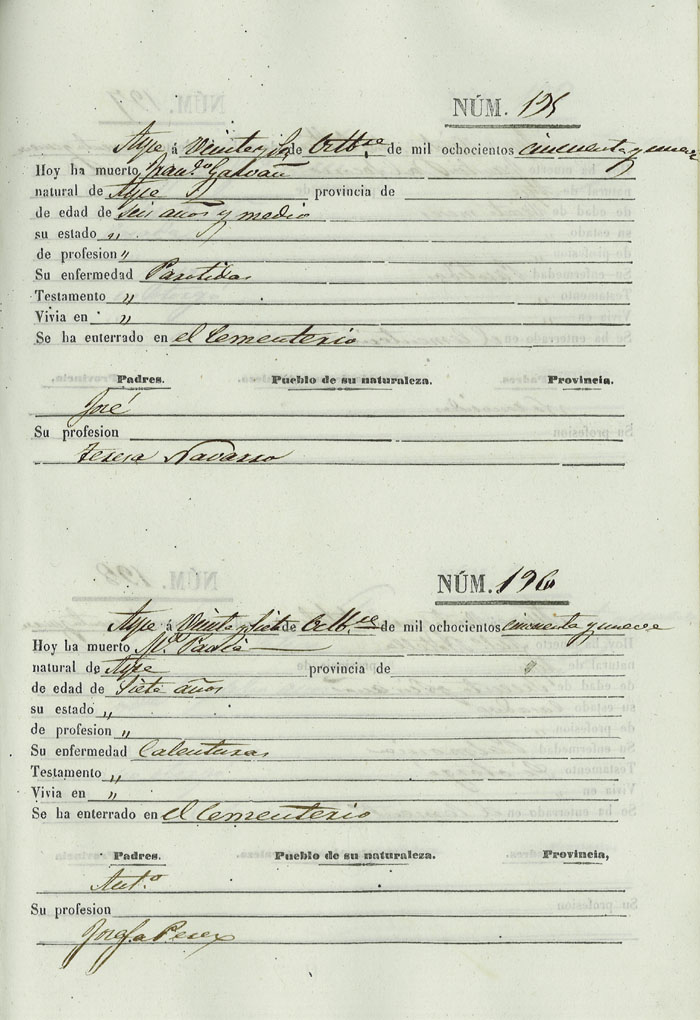 NÚM. 195
Aspe á Veinte y de Octb.re de mil ochocientos cincuenta y nueve
Hoy ha muerto Fran.co Galvañ
natural de Aspe provincia de
de edad de Seis años y medio
su estado „
de profesion „
Su enfermedad Parotidas
Testamento „
Vivia en „
Se ha enterrado en el Cementerio
Padres. Pueblo de su naturaleza. Provincia.
José
Su profesion
Teresa Navarro
NÚM. 196
Aspe á Veinte y siete de Octb.re de mil ochocientos cincuenta y nueve
Hoy ha muerto M.a
natural de Aspe provincia de „
de edad de Siete años
su estado „
de profesion „
Su enfermedad Calenturas
Testamento „
Vivia en „
Se ha enterrado en el Cementerio
Padres. Pueblo de su naturaleza. Provincia,
Ant.o
Su profesion
Josefa Perez